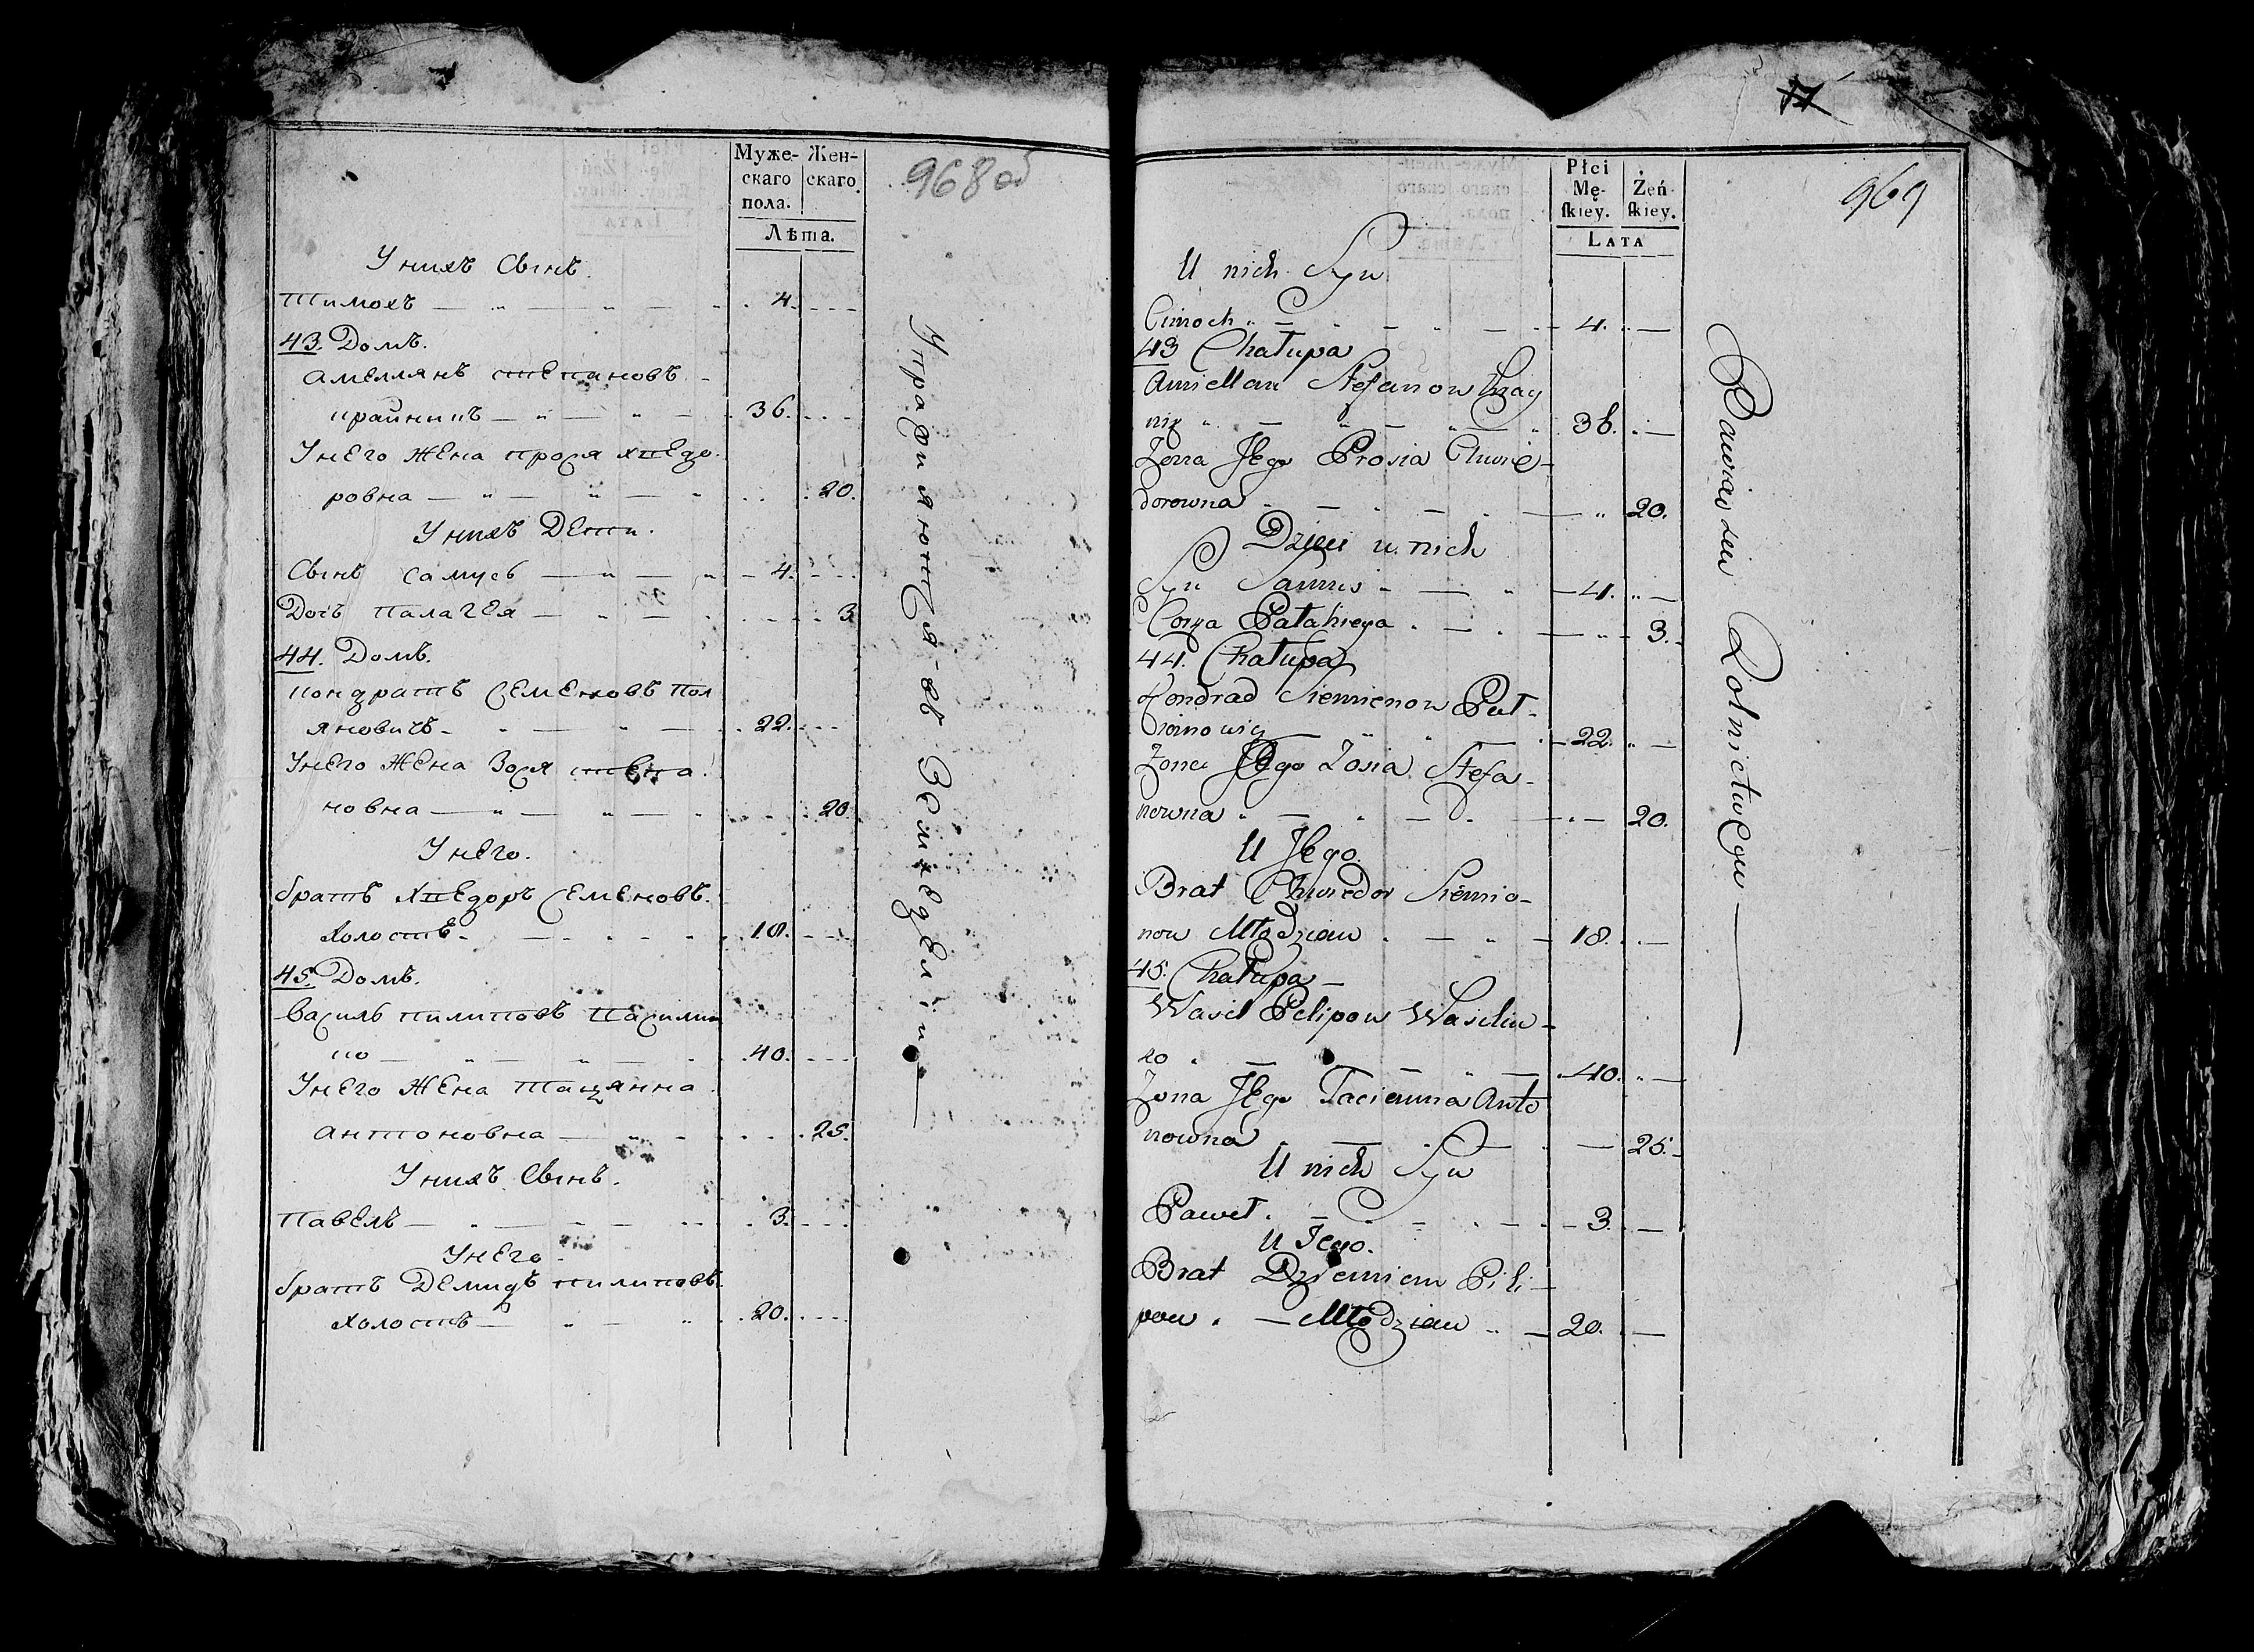 Муже- Жен-
скаго скаго.
пола.
Лѣта.
968 об
У нихъ Сынъ.
Тимохъ 4.
43. Домъ.
Амеллянъ Степановъ
крайникъ 36.
У него Жена Прося Хведо-
ровна 20.
У нихъ Дети.
Сынъ Самусь 4.
Дочь Палагея 3
44. Домъ.
Кондратъ Семеновъ Пол
яновичъ 22.
У него Жена Зося Степа-
новна 20
У него.
братъ Хведоръ Семеновъ.
Холостъ 18.
45. Домъ.
Василь Пилиповъ
ко 40.
У него Жена Тацянна
Антоновна 25.
У нихъ Сынъ.
Павелъ 3.
У него
братъ Демидъ Пилиповъ.
Холостъ 20.
Упражняются въ Земледелiи
17
969
Płci
Mę- Żeń-
ſkiey. ſkiey.
LATA
U nich Syn
Cimoch 4.
43 Chałupa
Amellan Stefanow Kray
nik 36.
Żona Jego Prosia Chwie-
dorowna 20.
Dzieci u nich
Syn Samus 4.
Corya Pałahieya 3.
44. Chałupa
Kondrad Siemienow Poł-
ianowicz 22.
Żona Jego Zosia Stefa-
nowna 20.
U Jego.
Brat Chwiedor Siemio-
now Młodzian 18.
45. Chałupa
Wasil Pilipow Wasilin-
ko 40.
Żona Jego Tacianna Anto
nowna 25.
U nich Syn
Paweł 3.
U Jego.
Brat Dziemian Pili-
pow Młodzian 20.
Bawią się Rolnictwem